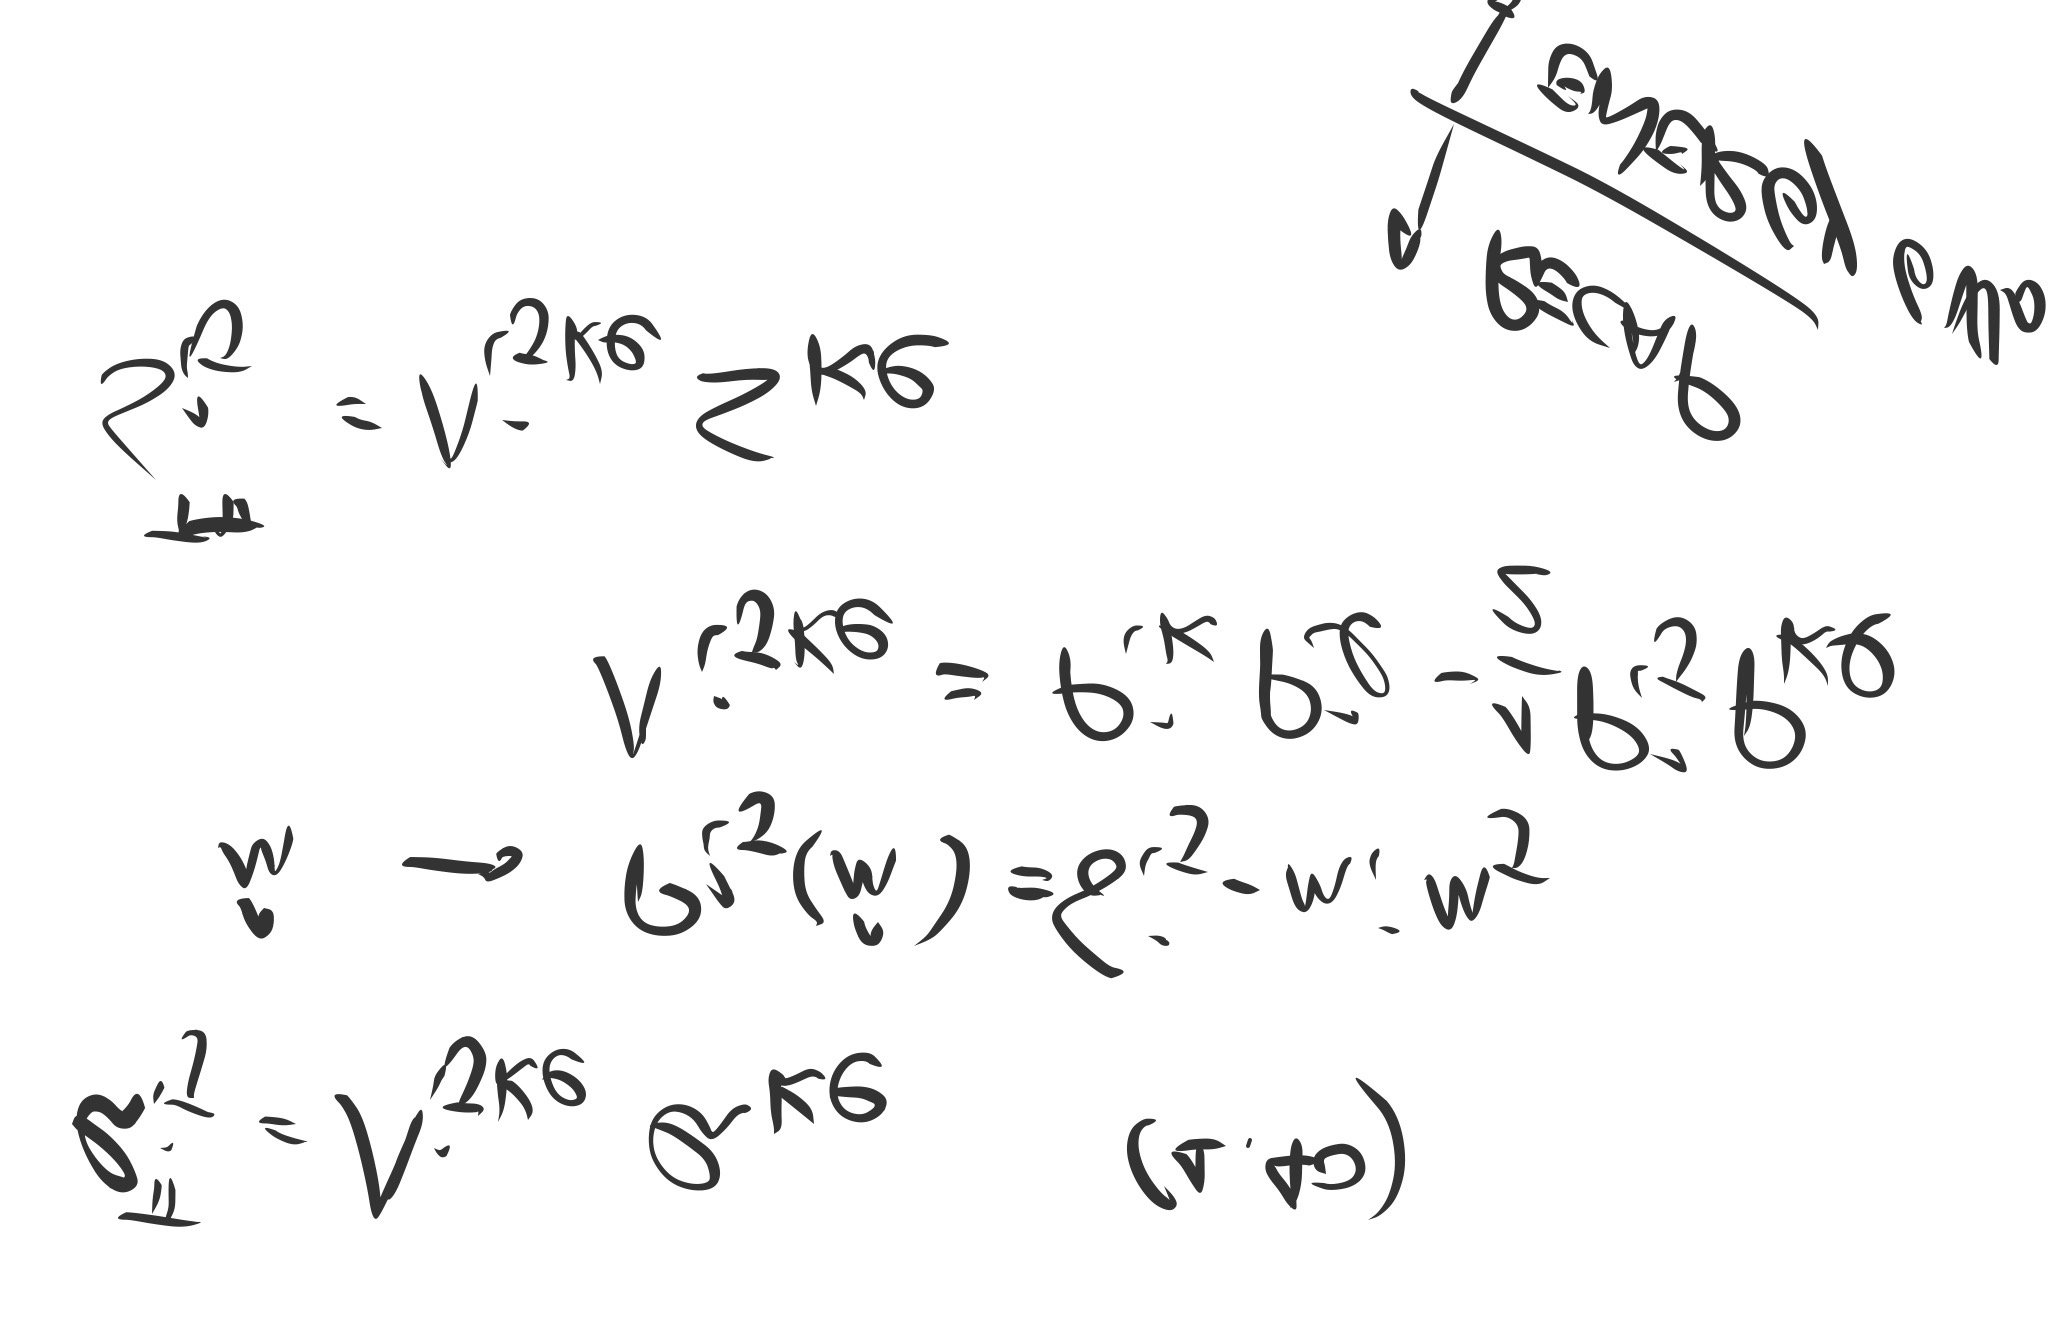 h_{ij}^{TT} = Λ_{ijkl} h_{kl} (1.40)
n̂ → P_{ij}(n̂) = δ_{ij} - n_i n_j
Λ_{ijkl} = P_{ik} P_{jl} - 1/2 P_{ij} P_{kl}
S_{ij}^{TT} = Λ_{ijkl} S_{kl}
RECAP
ENERGY GWs